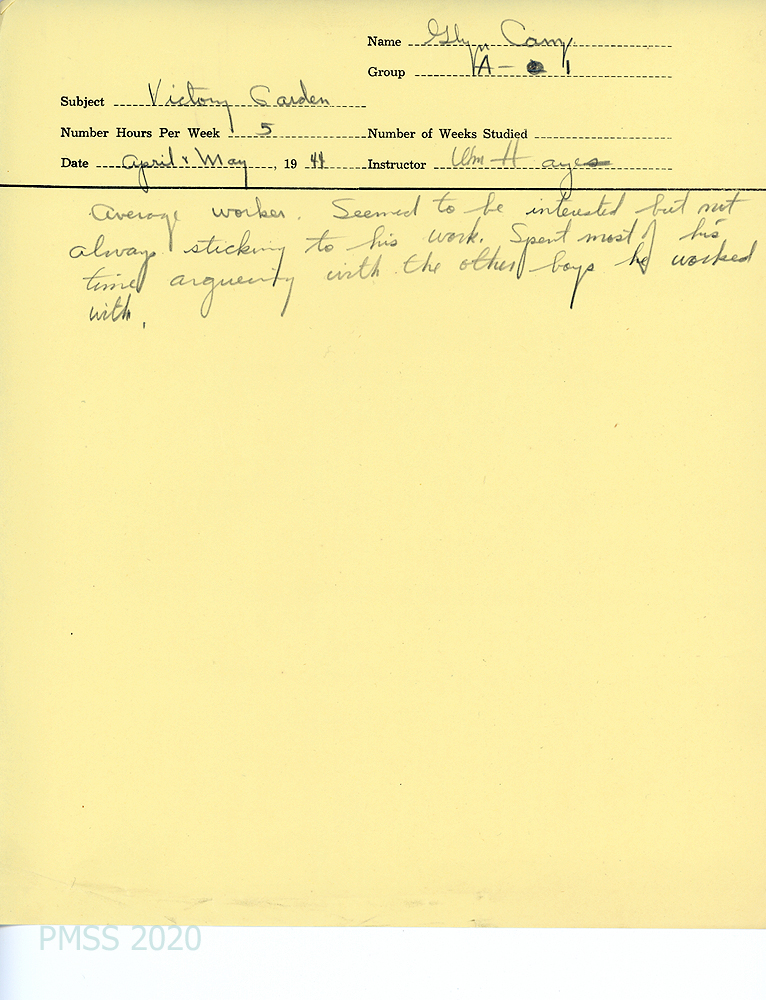 Name Glyn Camp
Group A - 1
Subject Victory Garden
Number Hours Per Week 5 Number of Weeks Studied
Date April & May, 19 44 Instructor Wm Hayes
Average worker. Seemed to be interested but not
always sticking to his work. Spent most of his
time argueing with the other boys he worked
with.
PMSS 2020